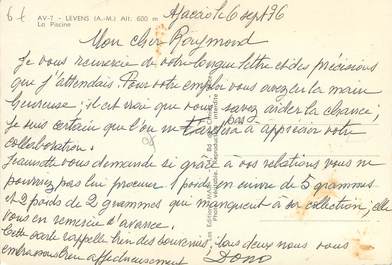 6 f
AV-7 - LEVENS (A.-M.) Alt. 600 m
La Piscine
Ajaccio le 6 sept 76
Mon cher Raymond
Je vous remercie de votre longue lettre et des précisions
que j'attendais. Pour votre emploi vous avez eu la main
heureuse ; il est vrai que vous savez aider la chance,
je suis certain que l'on ne tardera pas à apprécier votre
collaboration.
Jeannette vous demande si grâce à vos relations vous ne
pourriez pas lui procurer 1 poids en cuivre de 5 grammes
et 2 poids de 2 grammes qui manquent à sa collection ; elle
vous en remercie d'avance.
Cette carte rappelle bien des souvenirs, tous deux nous vous
embrassons bien affectueusement